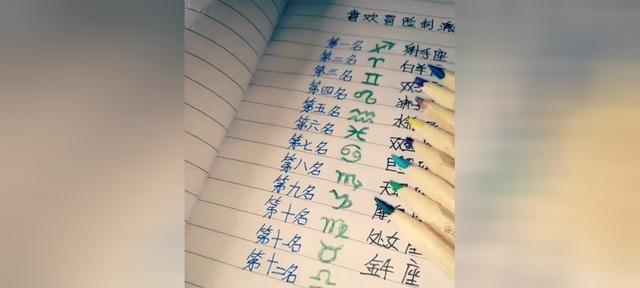 喜欢冒险刺激
第一名 ♐ 射手座
第二名 ♈ 白羊
第三名 ♊ 双
第四名 ♌ 狮
第五名 ♒ 水
第六名 ♓ 双
第七名 ♋ 巨
第八名 ♏ 天
第九名 ♑ 摩
第十名 ♍ 处女
第十一名 ♉ 金牛座
第十二名 ♎